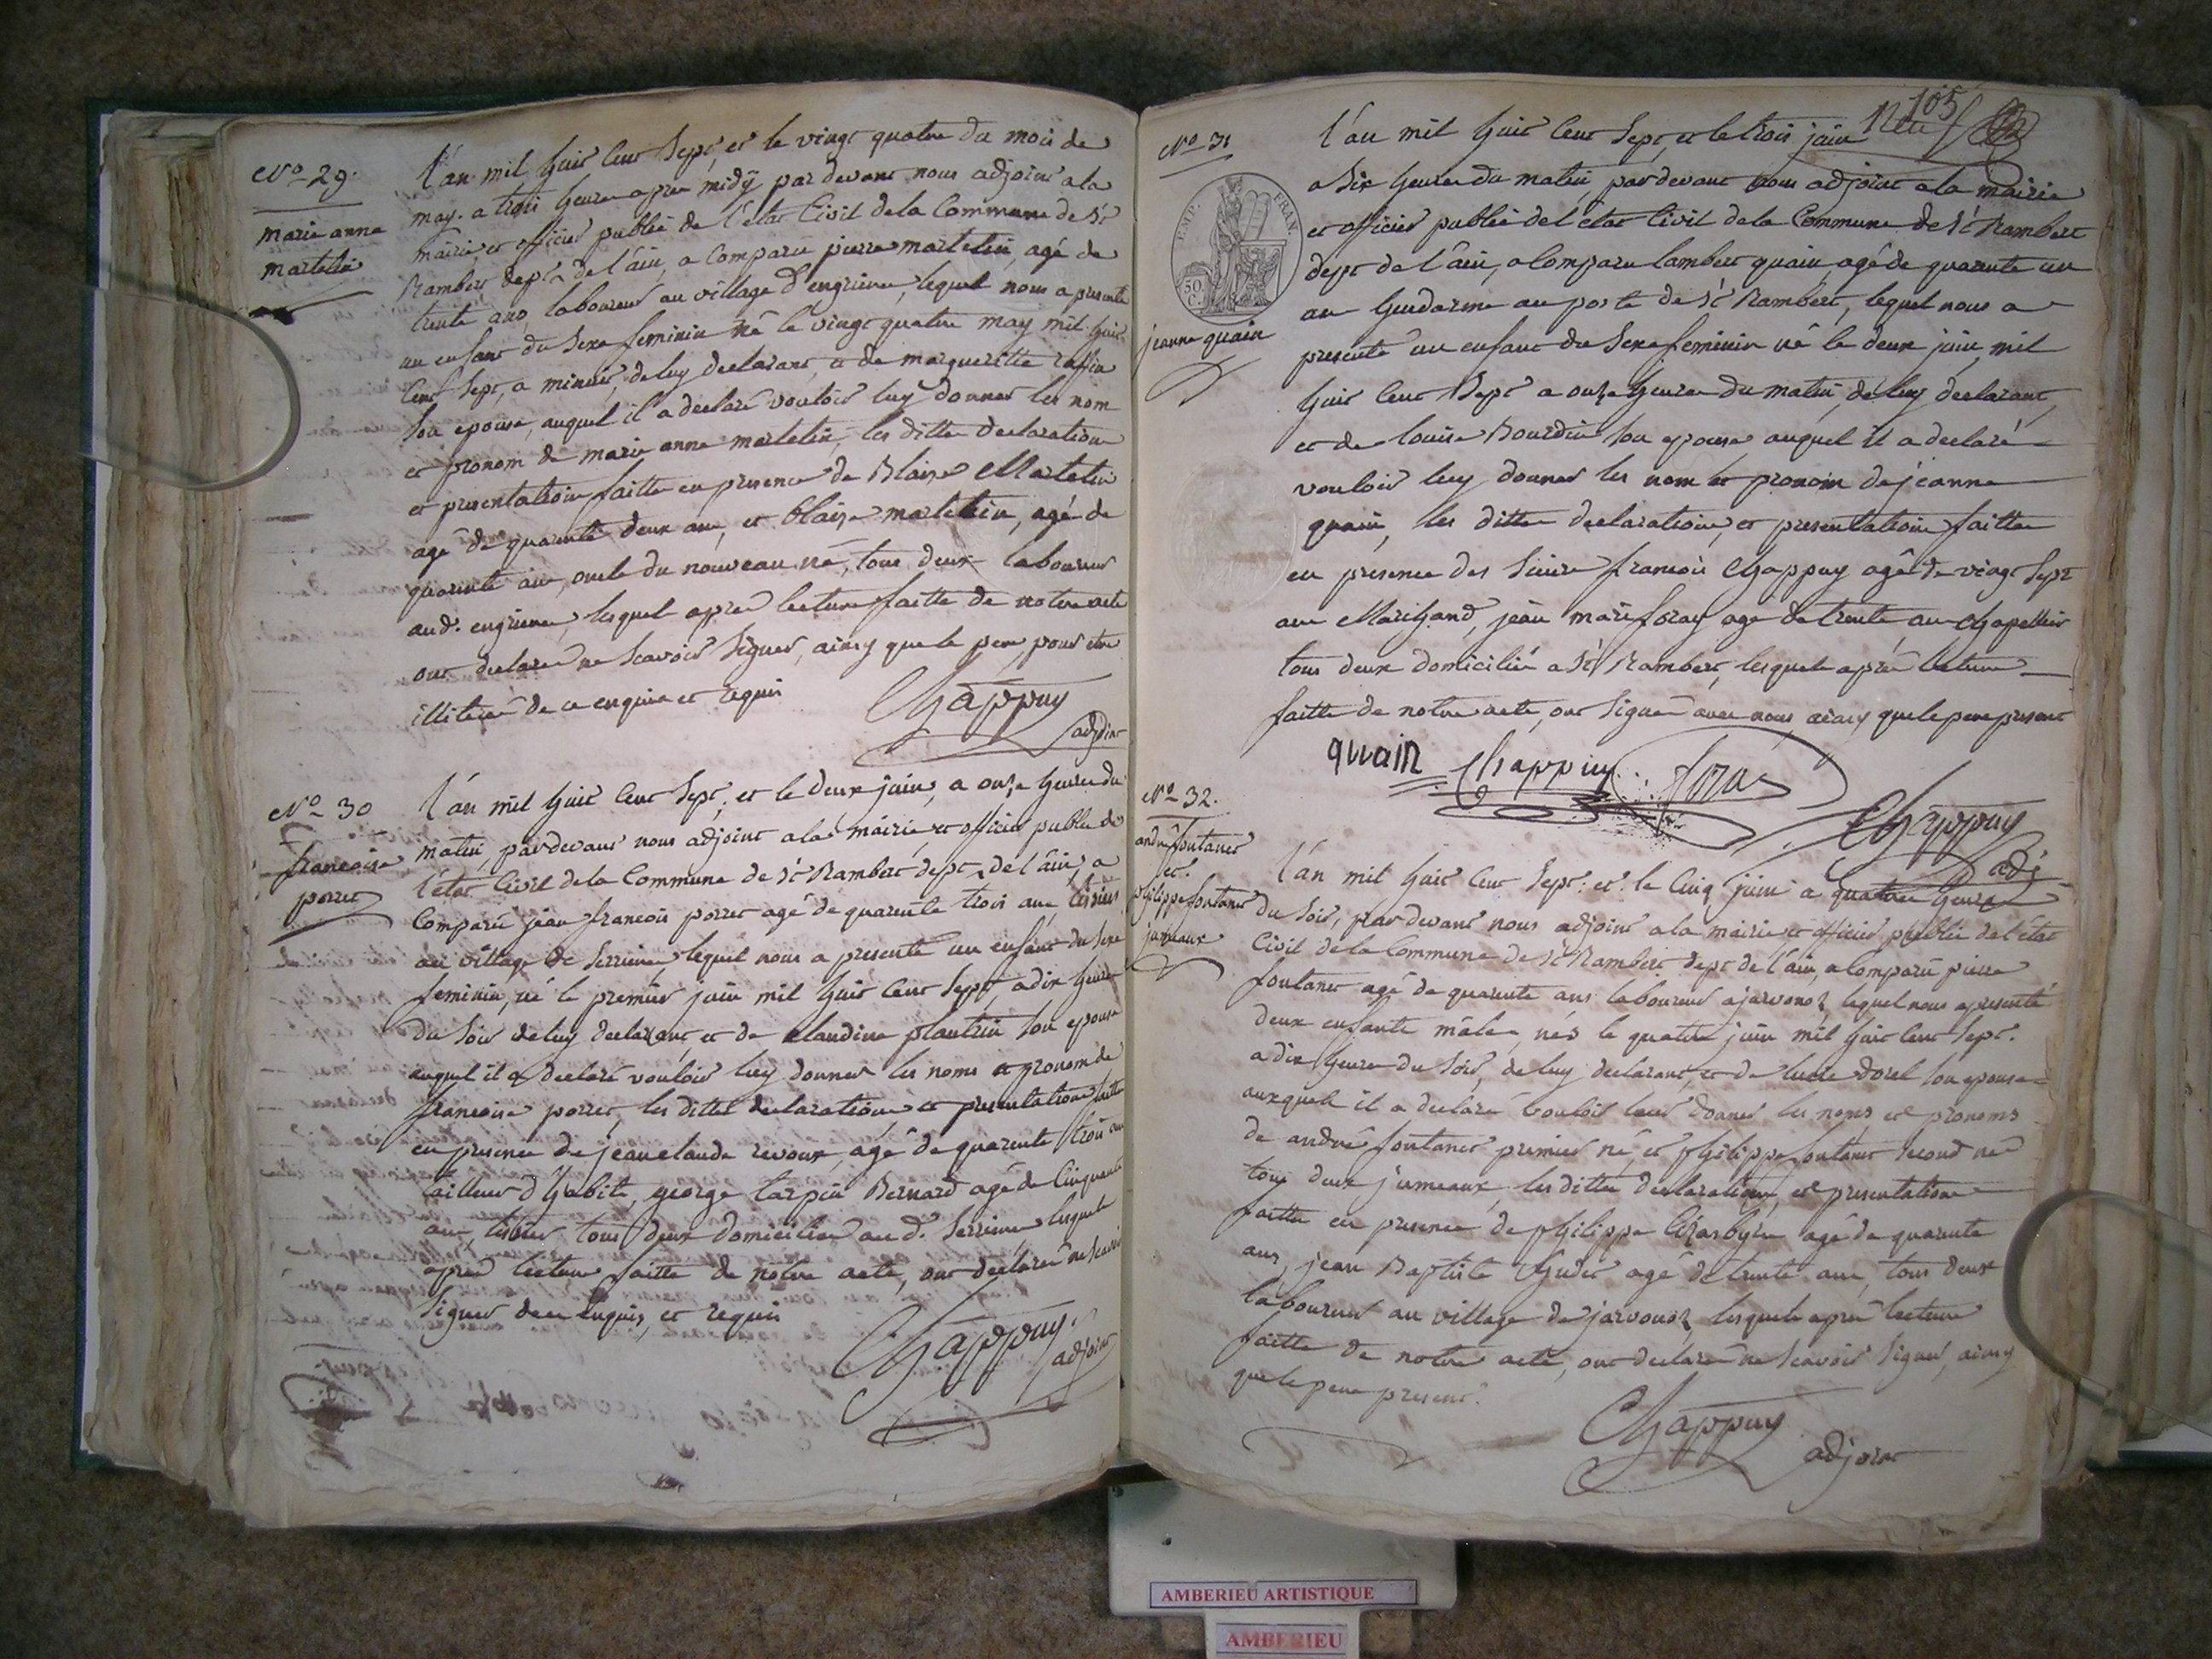 No 29.
marie anne
martelin
L'an mil huit Cent Sept, et le vingt quatre du mois de
may. a trois heure apres midÿ par devant nous adjoint a la
mairie et officier public de l'état Civil de la Commune de St
Rambert dept de l'ain, a Comparu pierre martelin, agé de
trente ans, laboureur au village d'engrieve, lequel nous a presenté
un enfant du Sexe feminin né le vingt quatre may mil huit
Cent Sept, a minuit, de luy declarant, et de margueritte
Son epouse, auquel il a declaré vouloir luy donner les nom
et pronom de marie anne martelin, les ditte declaration
et presentation faitte en presence de Blaise Martelin
agé de quarante deux ans, et blaise martelin, agé de
quarante ans, oncle du nouveau né, tous deux laboureur
aud. engrieve, lesquel apres lecture faitte de notre acte
ont declaré ne Scavoir Signer, ainsy que le pere pour etre
illiteré de ce enquis et requis
Chappuy
adjoint
No 30
francoise
porret
L'an mil huit Cent Sept, et le deux juin, a onze heure du
matin, par devant nous adjoint a la mairie et officier public de
l'état Civil de la Commune de St Rambert dept de l'ain, a
Comparu jean francois porret agé de quarante trois ans
au village de Serrieve, lequel nous a presenté un enfant du Sexe
feminin, né le premier juin mil huit Cent Sept, a dix heure
du Soir de luy declarant et de claudine plantin Son epouse
auquel il a declaré vouloir luy donner les noms et pronom de
francoise porret, les dittes declaration et presentation faite
en presence de jean claude revoux, agé de quarante trois ans
tailleur d'habits, george tarpin Bernard agé de Cinquante
ans tous deux domicilié aud. Serrieve lesquel
apres lecture faitte de notre acte, ont declaré ne Scavoir
Signer de ce enquis, et requis
Chappuy.
adjoint
105
No 31
EMP. FRAN.
50 C.
jeanne quain
L'an mil huit Cent Sept, et le trois juin
a Six heure du matin, par devant nous adjoint a la mairie
et officier public de l'état Civil de la Commune de St Rambert
dept de l'ain, a Comparu lambert quain, agé de quarante un
an Gendarme au poste de St Rambert, lequel nous a
presenté un enfant du Sexe feminin né le deux juin, mil
huit Cent Sept a onze heure du matin, de luy declarant,
et de louise Bourdin Son epouse auquel il a declaré
vouloir luy donner les nom et pronom de jeanne
quain, les ditte declaration, et presentation faitte
en presence des Sieurs francois Chappuy agé de vingt Sept
ans Marchand, jean marie foray agé de trente ans chapellier
tous deux domicilié a St Rambert, lesquel après lecture
faitte de notre acte, ont Signé avec nous, ainsy que le pere present
quain Chappuy foras
Chappuy
adj
No 32.
andré fontanet
et.
philippe fontanet
jumeaux
L'an mil huit Cent Sept. et le Cinq juin a quatre heure
du Soir, par devant nous adjoint a la mairie et officier public de l'état
Civil de la Commune de St Rambert dept de l'ain, a Comparu pierre
fontanet agé de quarante ans laboureur a javornoz, lequel nous a presenté
deux enfants mâle, nés le quatre juin mil huit Cent Sept.
a dix heure du Soir, de luy declarant, et de lucie dorel Son epouse
auxquels il a declaré vouloir leur donner les noms et pronoms
de andré fontanet premier né, et philippe fontanet Second né
tous deux jumeaux, les ditte declaration, et presentation
faitte en presence de philippe agé de quarante
ans, jean Baptiste agé de trente ans, tous deux
laboureur au village de javornoz, lesquels apres lecture
faitte de notre acte, ont declaré ne Scavoir Signer, ainsy
que le pere present.
Chappuy
adjoint
AMBERIEU ARTISTIQUE
AMBERIEU